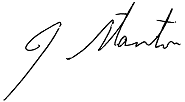 J Stanton